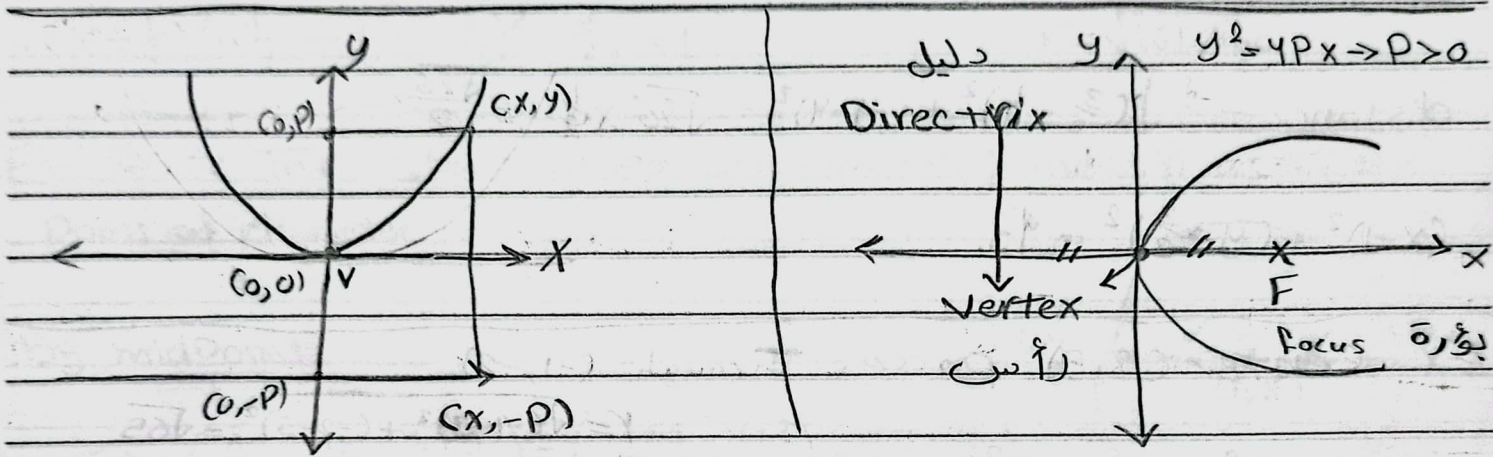 y
(x, y)
(0, P)
X
(0, 0)
V
(0, -P)
(x, -P)
دليل
Directrix
y
y² = 4Px → P > 0
x
F
Vertex
رأس
focus بؤرة